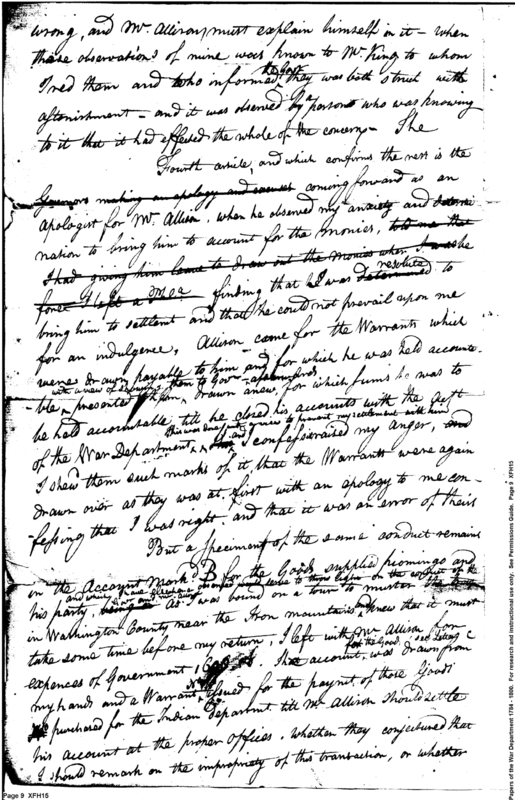 wrong, and Mr. Allison, must explain himself in it – when
these observations of mine was known to Mr. King to whom
I red them and who informed the Govr. they was both struck with
astonishment – and it was observed by a person who was knowing
to it that it had effected the whole of the concern – The
Fourth article, and which confirms the rest is the
Governors making an apology and coming forward as an
apologist for Mr. Allison, when he observed my anxiety and determi
nation to bring him to account for the monies, told me that
I had giving him leave to draw out the monies when I was he
fore I left – finding that I was resolute determined to
bring him to settlemt and that he could not prevail upon me
for an indulgence, Allison came for the Warrants which
were drawn payable to him and for which he was held accounta-
ble – presented them, drawn anew, for which sums he was to
with a view of
be held accountable till he closed his accounts with the Acct
of the War Department
this was done just to prevent my settlement with him
and I confess raised my anger, and
I shew them such marks of it that the Warrants were again
drawn over as they was at first with an apology to me con
fessing that I was right, and that it was an error of theirs
But a specimen of the same conduct remains
on the Account mark'd B for the Goods supplied piomings and
his party, As I was bound on a tour to muster the
in Washington County near the Iron mountains and knew that it must
take some time before my return, I left with Mr. Allison for
expences of Government account, was drawn from
for the Goods. see Letter C
my hands and a Warrant No. issued for the paymt of those Goods
purchased for the Indian deparment till Mr. Allison should settle
his account at the proper offices. whether they conjectured that
I should remark on the impropriety of this transaction, or whether
Page 9 XFH15
Papers of the War Department 1784 - 1800. For research and instructional use only. See Permissions Guide. Page 9 XFH15